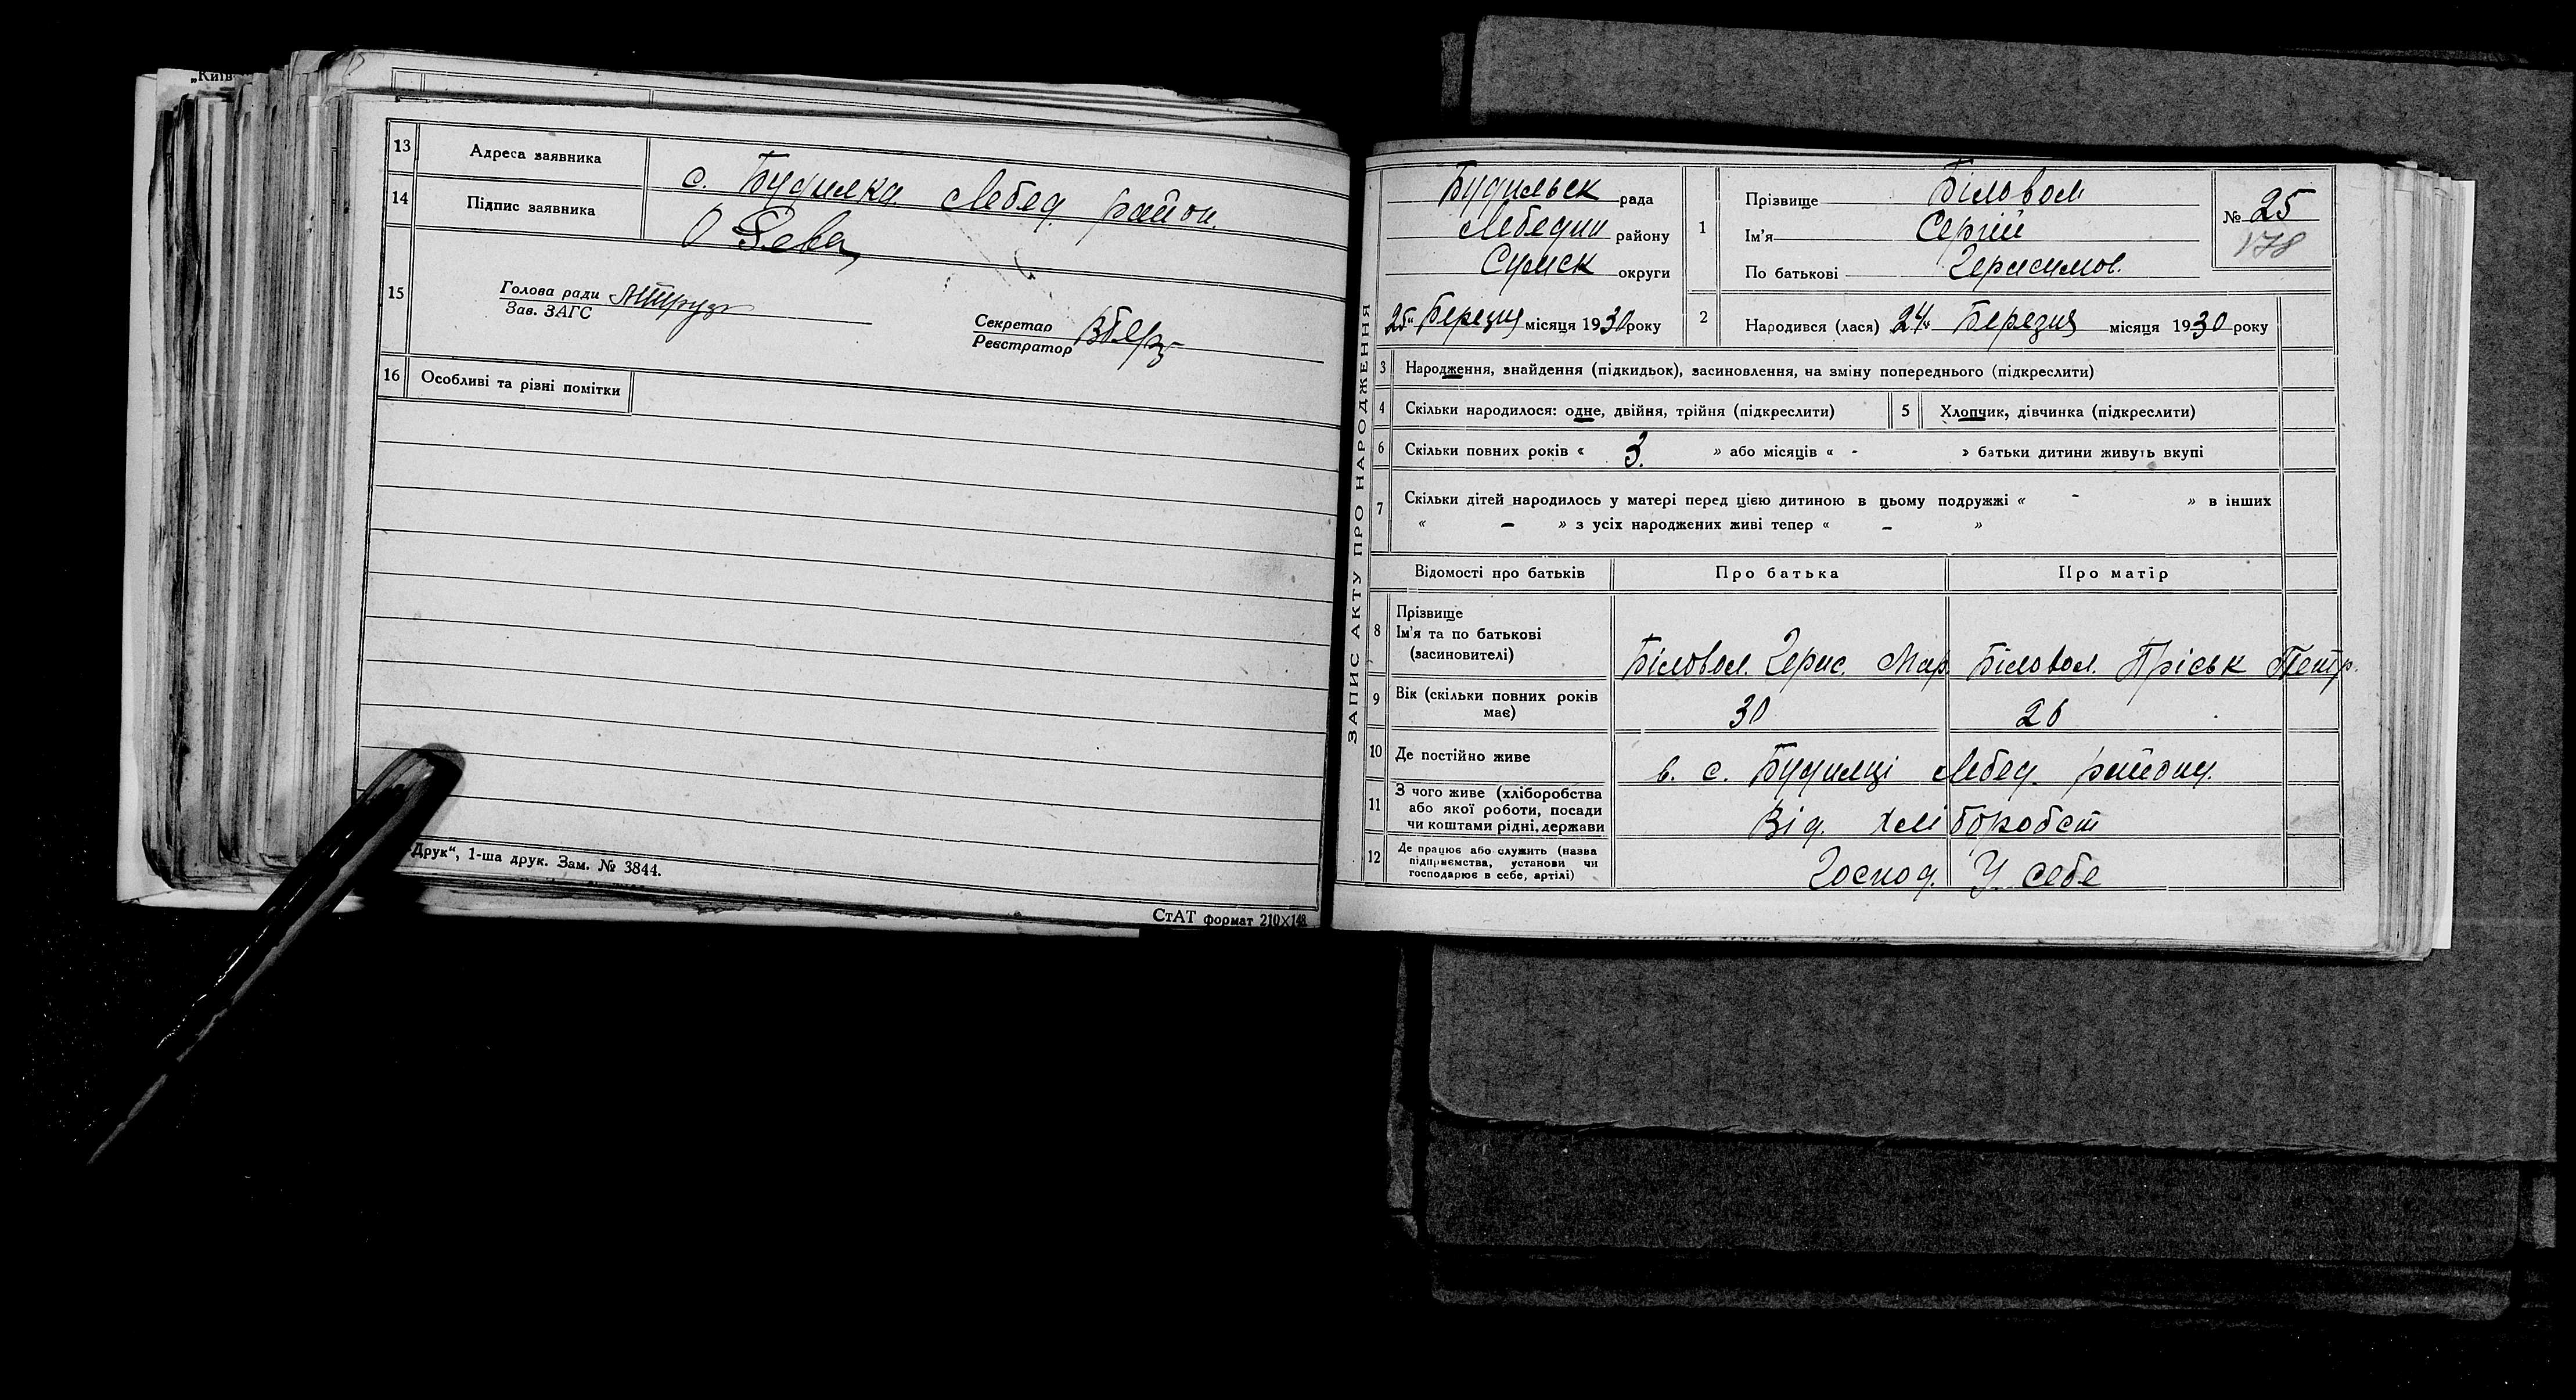 „Київ
13 Адреса заявника с. Будилка Лебед. район.
14 Підпис заявника О Рева
15 Голова ради
Зав. ЗАГС
Секретар
Реєстратор
16 Особливі та різні помітки
Друк“, 1-ша друк. Зам. № 3844.
СтАТ формат 210×148
ЗАПИС АКТУ ПРО НАРОДЖЕННЯ
Будильск рада
Лебедин району
Сумск округи
25" Березня місяця 1930 року
1 Прізвище Біловол
Ім'я Сергій
По батькові Герасимов.
№ 25
178
2 Народився (лася) 24" Березня місяця 1930 року
3 Народження, знайдення (підкидьок), засиновлення, на зміну попереднього (підкреслити)
4 Скільки народилося: одне, двійня, трійня (підкреслити) 5 Хлопчик, дівчинка (підкреслити)
6 Скільки повних років « 3. » або місяців « - » батьки дитини живуть вкупі
7 Скільки дітей народилось у матері перед цією дитиною в цьому подружжі « - » в інших
« - » з усіх народжених живі тепер « - »
Відомості про батьків Про батька Про матір
8 Прізвище
Ім'я та по батькові
(засиновителі)
Біловол. Герас. Мар. Біловол. Пріськ Петр.
9 Вік (скільки повних років
має)
30 26
10 Де постійно живе в. с. Будилці Лебед. району.
11 З чого живе (хліборобства
або якої роботи, посади
чи коштами рідні, держави
Від. хліборобст
12 Де працює або служить (назва
підприємства, установи чи
господарює в себе, артілі)
Господ. У себе